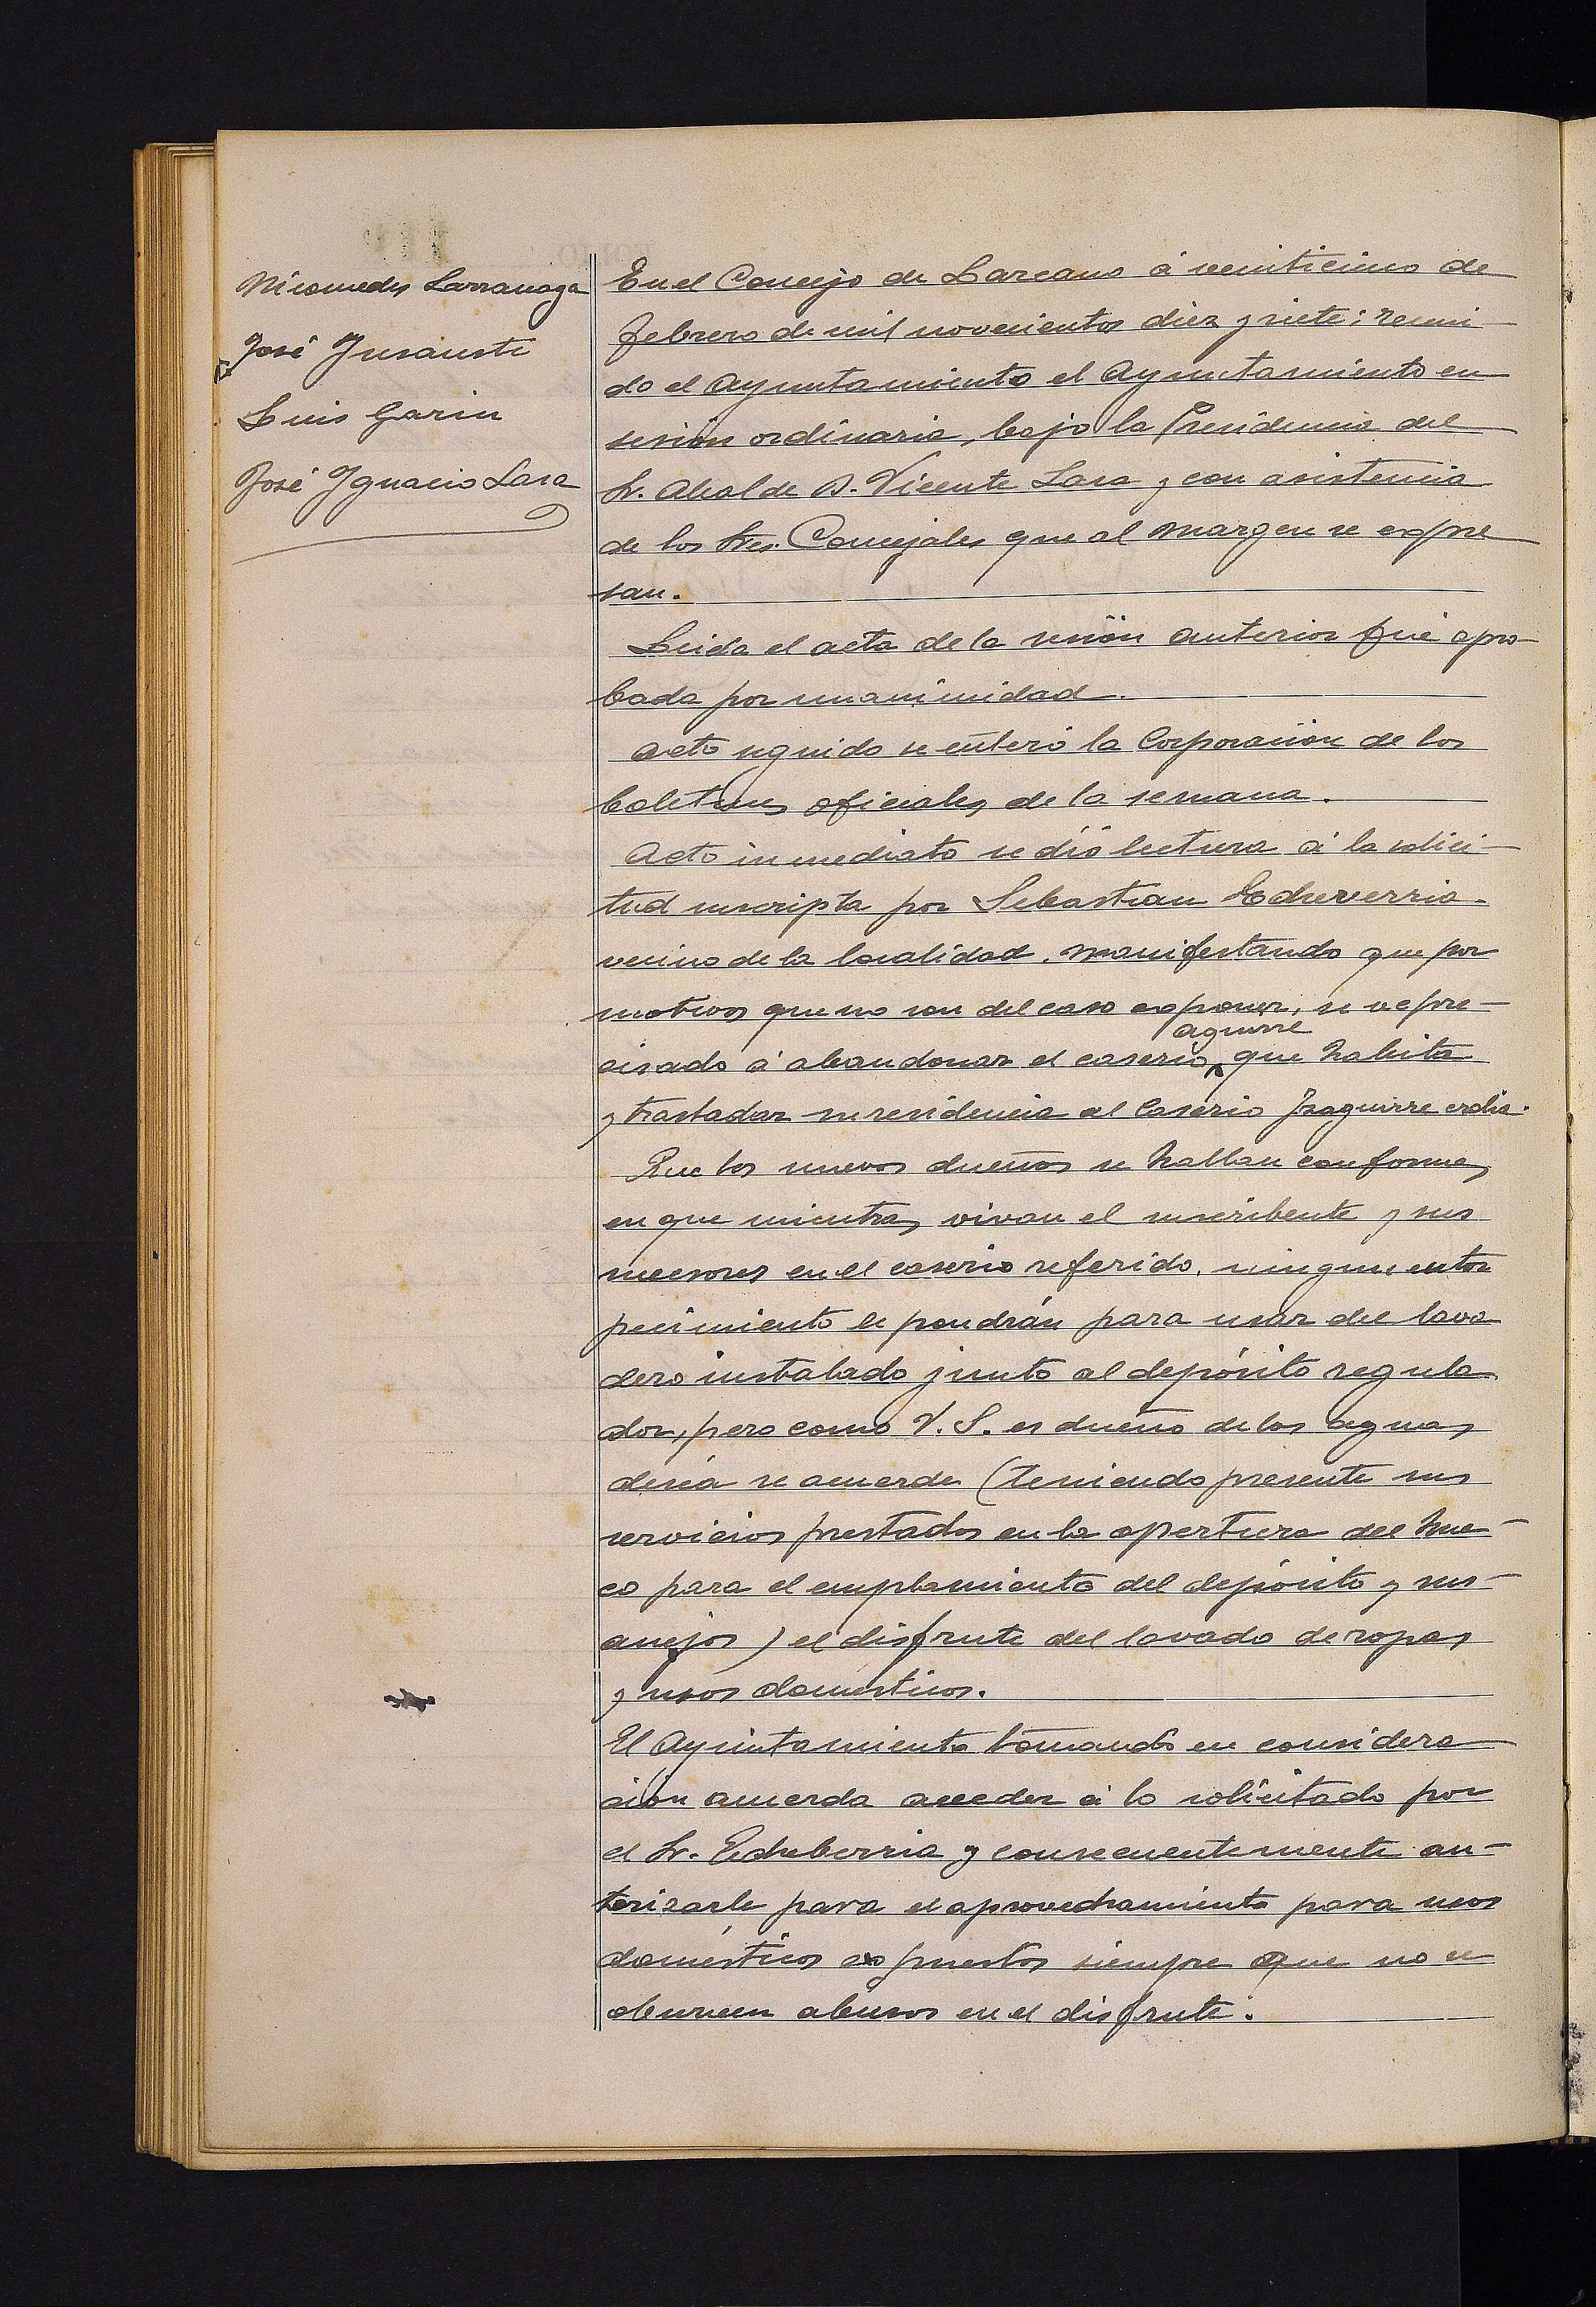 Nicomedes Larranaga
José Insausti
Luis Garin
José Ignacio Lasa
En el Concejo de Lazcano á veinticinco de
febrero de mil novecientos diez y siete: reuni
do el Ayuntamiento el Ayuntamiento en
sesión ordinaria, bajo la Presidencia del
Sr. Alcalde D. Vicente Lasa y con asistencia
de los Sres. Concejales que al margen se expre
san.
Leida el acta de la sesión anterior fué apro-
bada por unanimidad.
Acto seguido se enteró la Corporación de los
boletines oficiales de la semana.
Acto inmediato se dió lectura á la solici-
tud suscripta por Sebastian Echeverria.
vecino de la localidad. manifestando que por
motivos que no son del caso exponer, se ve pre-
aguirre
cisado á abandonar el caserio que habita
y trastadar su residencia al Caserio Izaguirre erdia.
Que los nuevos dueños se hallan conformes
en que mientras vivan el suscribente y sus
sucesores en el caserio referido, ningun entor
pecimiento le pondrán para usar del lava
dero instalado junto al depósito regula
dor, pero como V. S. es dueño de las aguas
desea se acuerde (teniendo presente sus
servicios prestados en la apertura del hue-
co para el emplamiento del depósito y sus-
anejos) el disfrute del lavado de ropas
y usos domésticos.
El Ayuntamiento tomando en considera
ción acuerda acceder á lo solicitado por
el Sr. Echeberria y consecuentemente au-
torizarle para el aprovechamiento para usos
domésticos expuestos siempre que no se
observen abusos en el disfrute.